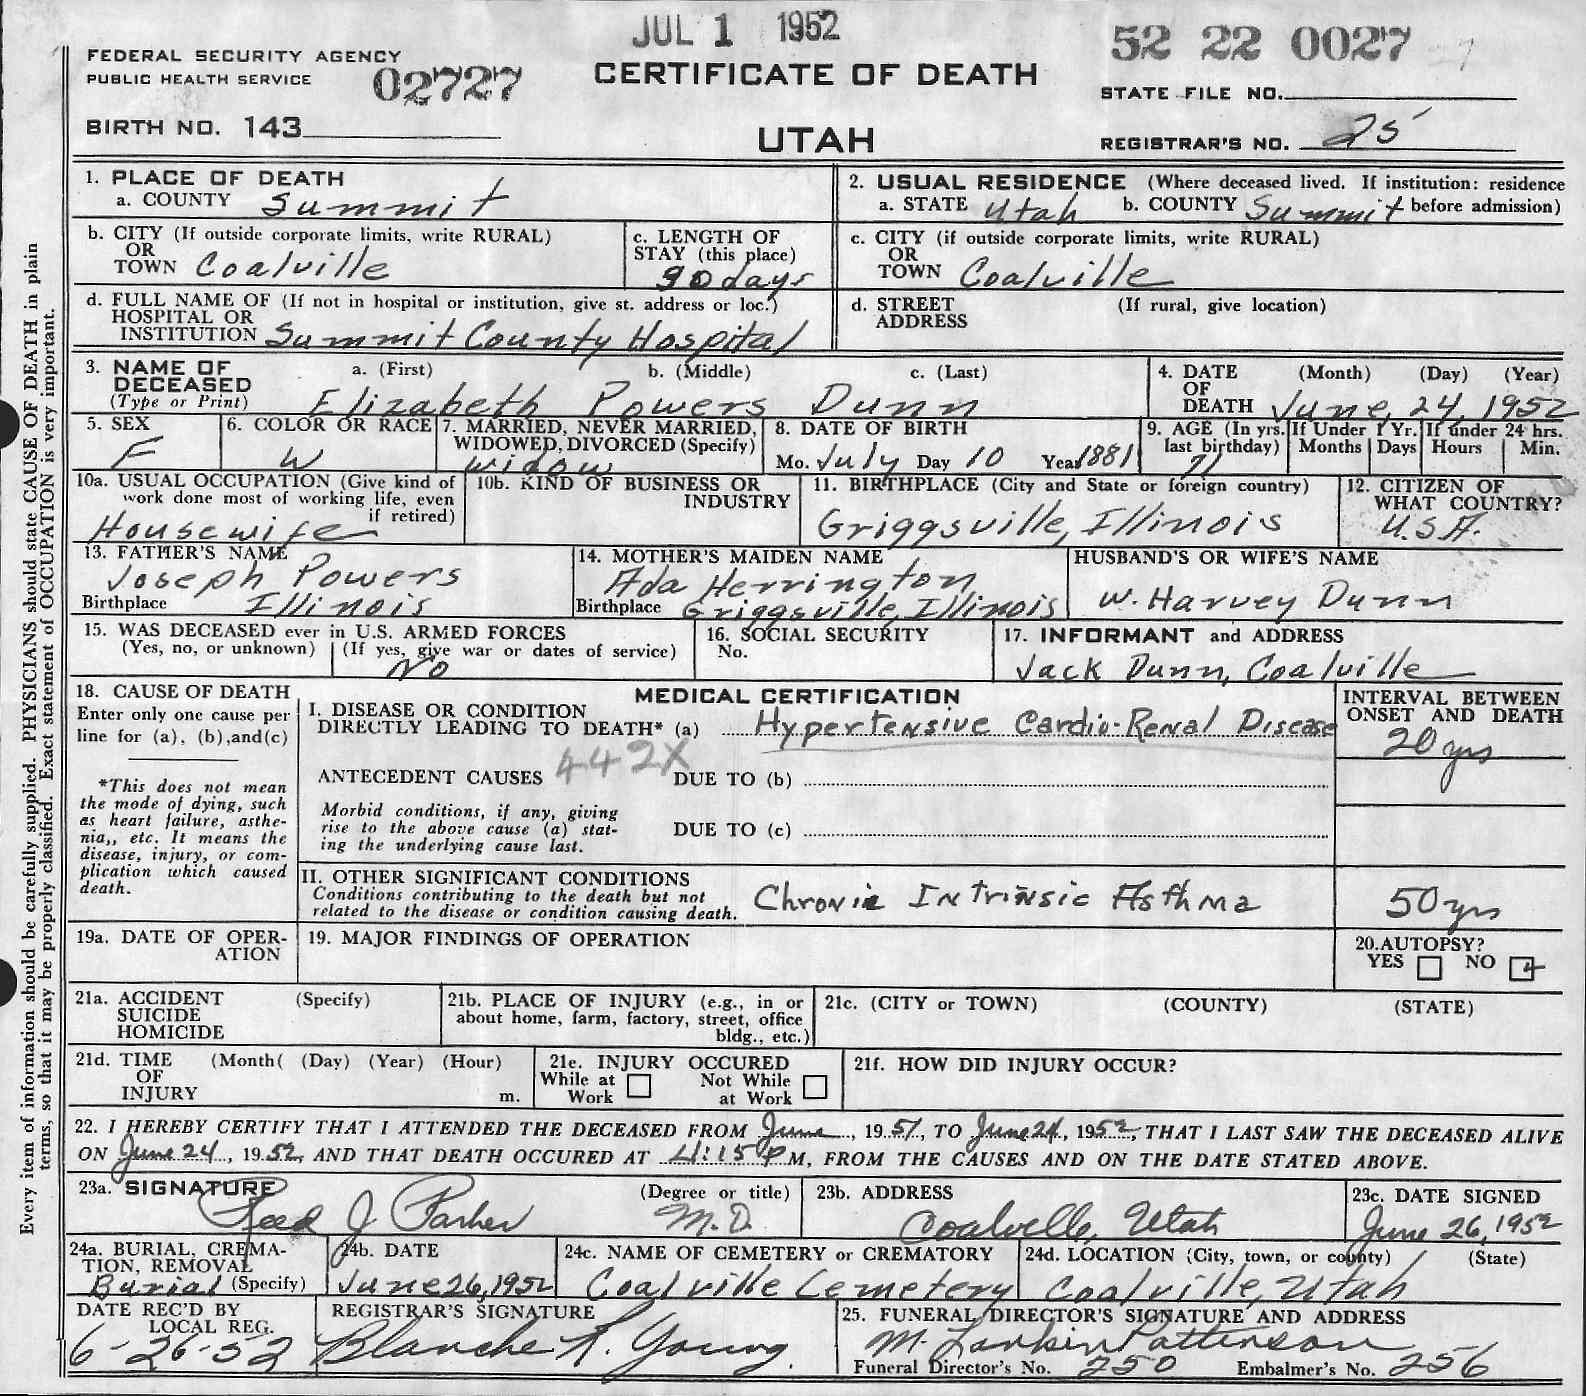 JUL 1 1952
52 22 0027
FEDERAL SECURITY AGENCY
PUBLIC HEALTH SERVICE
02727
CERTIFICATE OF DEATH
STATE FILE NO.
BIRTH NO. 143
UTAH
REGISTRAR'S NO. 25
1. PLACE OF DEATH
a. COUNTY Summit
2. USUAL RESIDENCE (Where deceased lived. If institution: residence
a. STATE Utah b. COUNTY Summit before admission)
b. CITY (If outside corporate limits, write RURAL)
OR
TOWN Coalville
c. LENGTH OF
STAY (this place)
90 days
c. CITY (if outside corporate limits, write RURAL)
OR
TOWN Coalville
d. FULL NAME OF (If not in hospital or institution, give st. address or loc.)
HOSPITAL OR
INSTITUTION Summit County Hospital
d. STREET (If rural, give location)
ADDRESS
3. NAME OF a. (First) b. (Middle) c. (Last)
DECEASED
(Type or Print) Elizabeth Powers Dunn
4. DATE (Month) (Day) (Year)
OF
DEATH June, 24, 1952
5. SEX
F
6. COLOR OR RACE
W
7. MARRIED, NEVER MARRIED,
WIDOWED, DIVORCED (Specify)
Widow
8. DATE OF BIRTH
Mo. July Day 10 Year 1881
9. AGE (In yrs.
last birthday)
71
If Under 1 Yr.
Months Days
If under 24 hrs.
Hours Min.
10a. USUAL OCCUPATION (Give kind of
work done most of working life, even
if retired)
Housewife
10b. KIND OF BUSINESS OR
INDUSTRY
11. BIRTHPLACE (City and State or foreign country)
Griggsville, Illinois
12. CITIZEN OF
WHAT COUNTRY?
U.S.A.
13. FATHER'S NAME
Joseph Powers
Birthplace Illinois
14. MOTHER'S MAIDEN NAME
Ada Herrington
Birthplace Griggsville, Illinois
HUSBAND'S OR WIFE'S NAME
W. Harvey Dunn
15. WAS DECEASED ever in U.S. ARMED FORCES
(Yes, no, or unknown) (If yes, give war or dates of service)
No
16. SOCIAL SECURITY
No.
17. INFORMANT and ADDRESS
Jack Dunn, Coalville
18. CAUSE OF DEATH
Enter only one cause per
line for (a), (b), and (c)
*This does not mean
the mode of dying, such
as heart failure, asthe-
nia,, etc. It means the
disease, injury, or com-
plication which caused
death.
MEDICAL CERTIFICATION
I. DISEASE OR CONDITION
DIRECTLY LEADING TO DEATH* (a) Hypertensive Cardio-Renal Disease
442X
ANTECEDENT CAUSES DUE TO (b)
Morbid conditions, if any, giving
rise to the above cause (a) stat-
ing the underlying cause last.
DUE TO (c)
INTERVAL BETWEEN
ONSET AND DEATH
20 yrs
II. OTHER SIGNIFICANT CONDITIONS
Conditions contributing to the death but not
related to the disease or condition causing death.
Chronic Intrinsic Asthma
50 yrs
19a. DATE OF OPER-
ATION
19. MAJOR FINDINGS OF OPERATION
20. AUTOPSY?
YES NO
21a. ACCIDENT (Specify)
SUICIDE
HOMICIDE
21b. PLACE OF INJURY (e.g., in or
about home, farm, factory, street, office
bldg., etc.)
21c. (CITY or TOWN) (COUNTY) (STATE)
21d. TIME (Month( (Day) (Year) (Hour)
OF
INJURY m.
21e. INJURY OCCURED
While at Work Not While at Work
21f. HOW DID INJURY OCCUR?
22. I HEREBY CERTIFY THAT I ATTENDED THE DECEASED FROM June, 1951, TO June 24, 1952, THAT I LAST SAW THE DECEASED ALIVE
ON June 24, 1952, AND THAT DEATH OCCURED AT 4:15 P M, FROM THE CAUSES AND ON THE DATE STATED ABOVE.
23a. SIGNATURE (Degree or title)
Reed J Parker M.D.
23b. ADDRESS
Coalville, Utah
23c. DATE SIGNED
June 26, 1952
24a. BURIAL, CREMA-
TION, REMOVAL
Burial (Specify)
24b. DATE
June 26, 1952
24c. NAME OF CEMETERY or CREMATORY
Coalville Cemetery
24d. LOCATION (City, town, or county) (State)
Coalville, Utah
DATE REC'D BY
LOCAL REG.
6-26-52
REGISTRAR'S SIGNATURE
Blanche R. Young.
25. FUNERAL DIRECTOR'S SIGNATURE AND ADDRESS
M. Larkin Patterson
Funeral Director's No. 250 Embalmer's No. 256
Every item of information should be carefully supplied. PHYSICIANS should state CAUSE OF DEATH in plain
terms, so that it may be properly classified. Exact statement of OCCUPATION is very important.